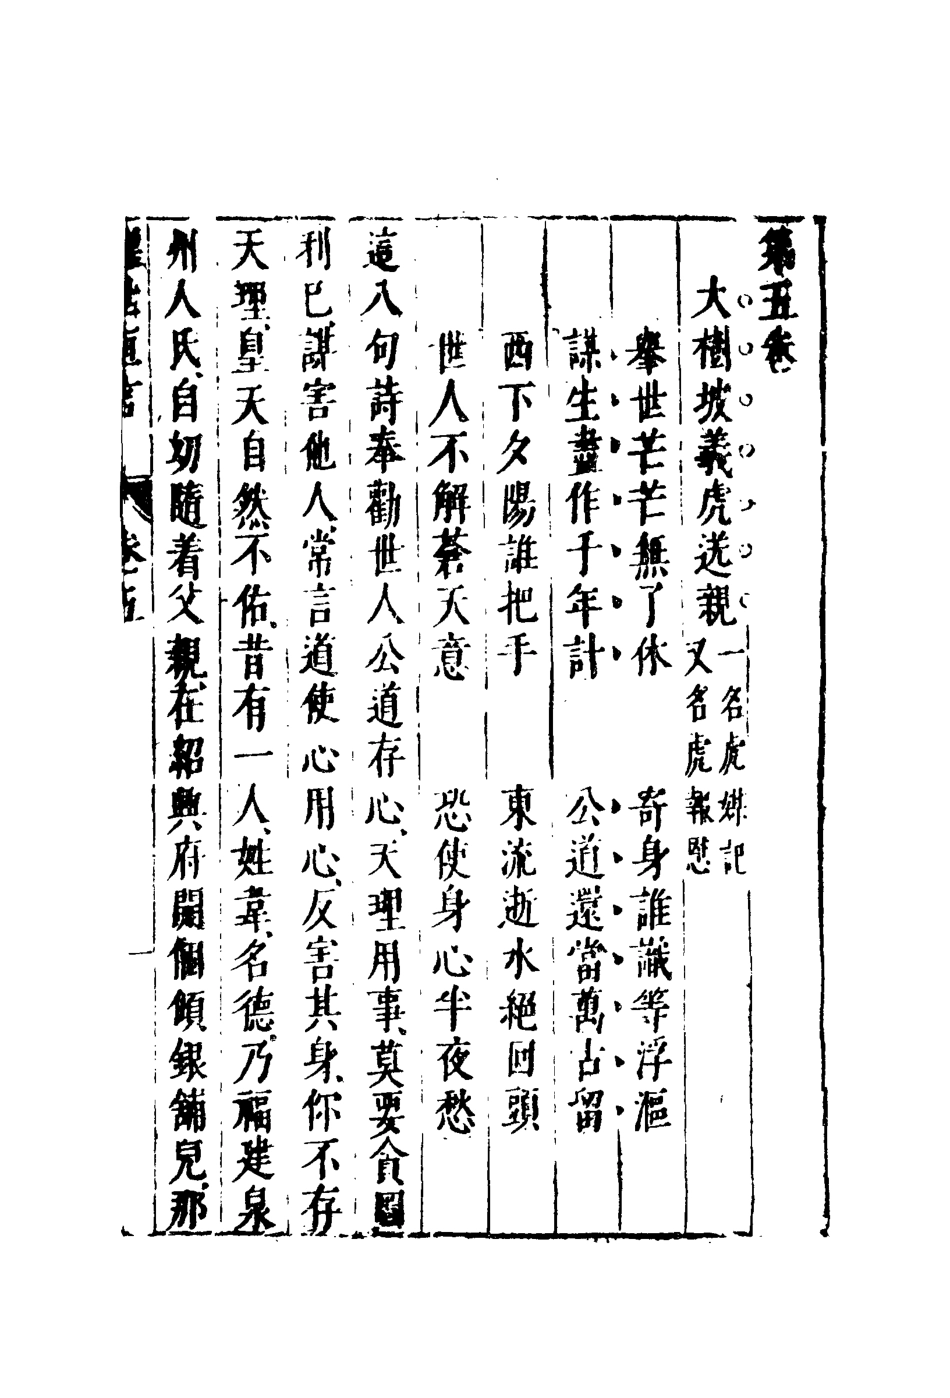 第五卷
大樹坡義虎送親
一名虎媒記
又名虎報恩
舉世芒芒無了休 寄身誰識等浮漚
謀生盡作千年計 公道還當萬古留
西下夕陽誰把手 東流逝水絕回頭
世人不解蒼天意 恐使身心半夜愁
這八句詩奉勸世人公道存心、天理用事、莫要貪圖
利己、謀害他人、常言道使心用心、反害其身、你不存
天理、皇天自然不佑、昔有一人、姓韋、名德、乃福建泉
州人氏、自幼隨着父親、在紹興府開個傾銀舖兒、那
醒世恒言 卷之五